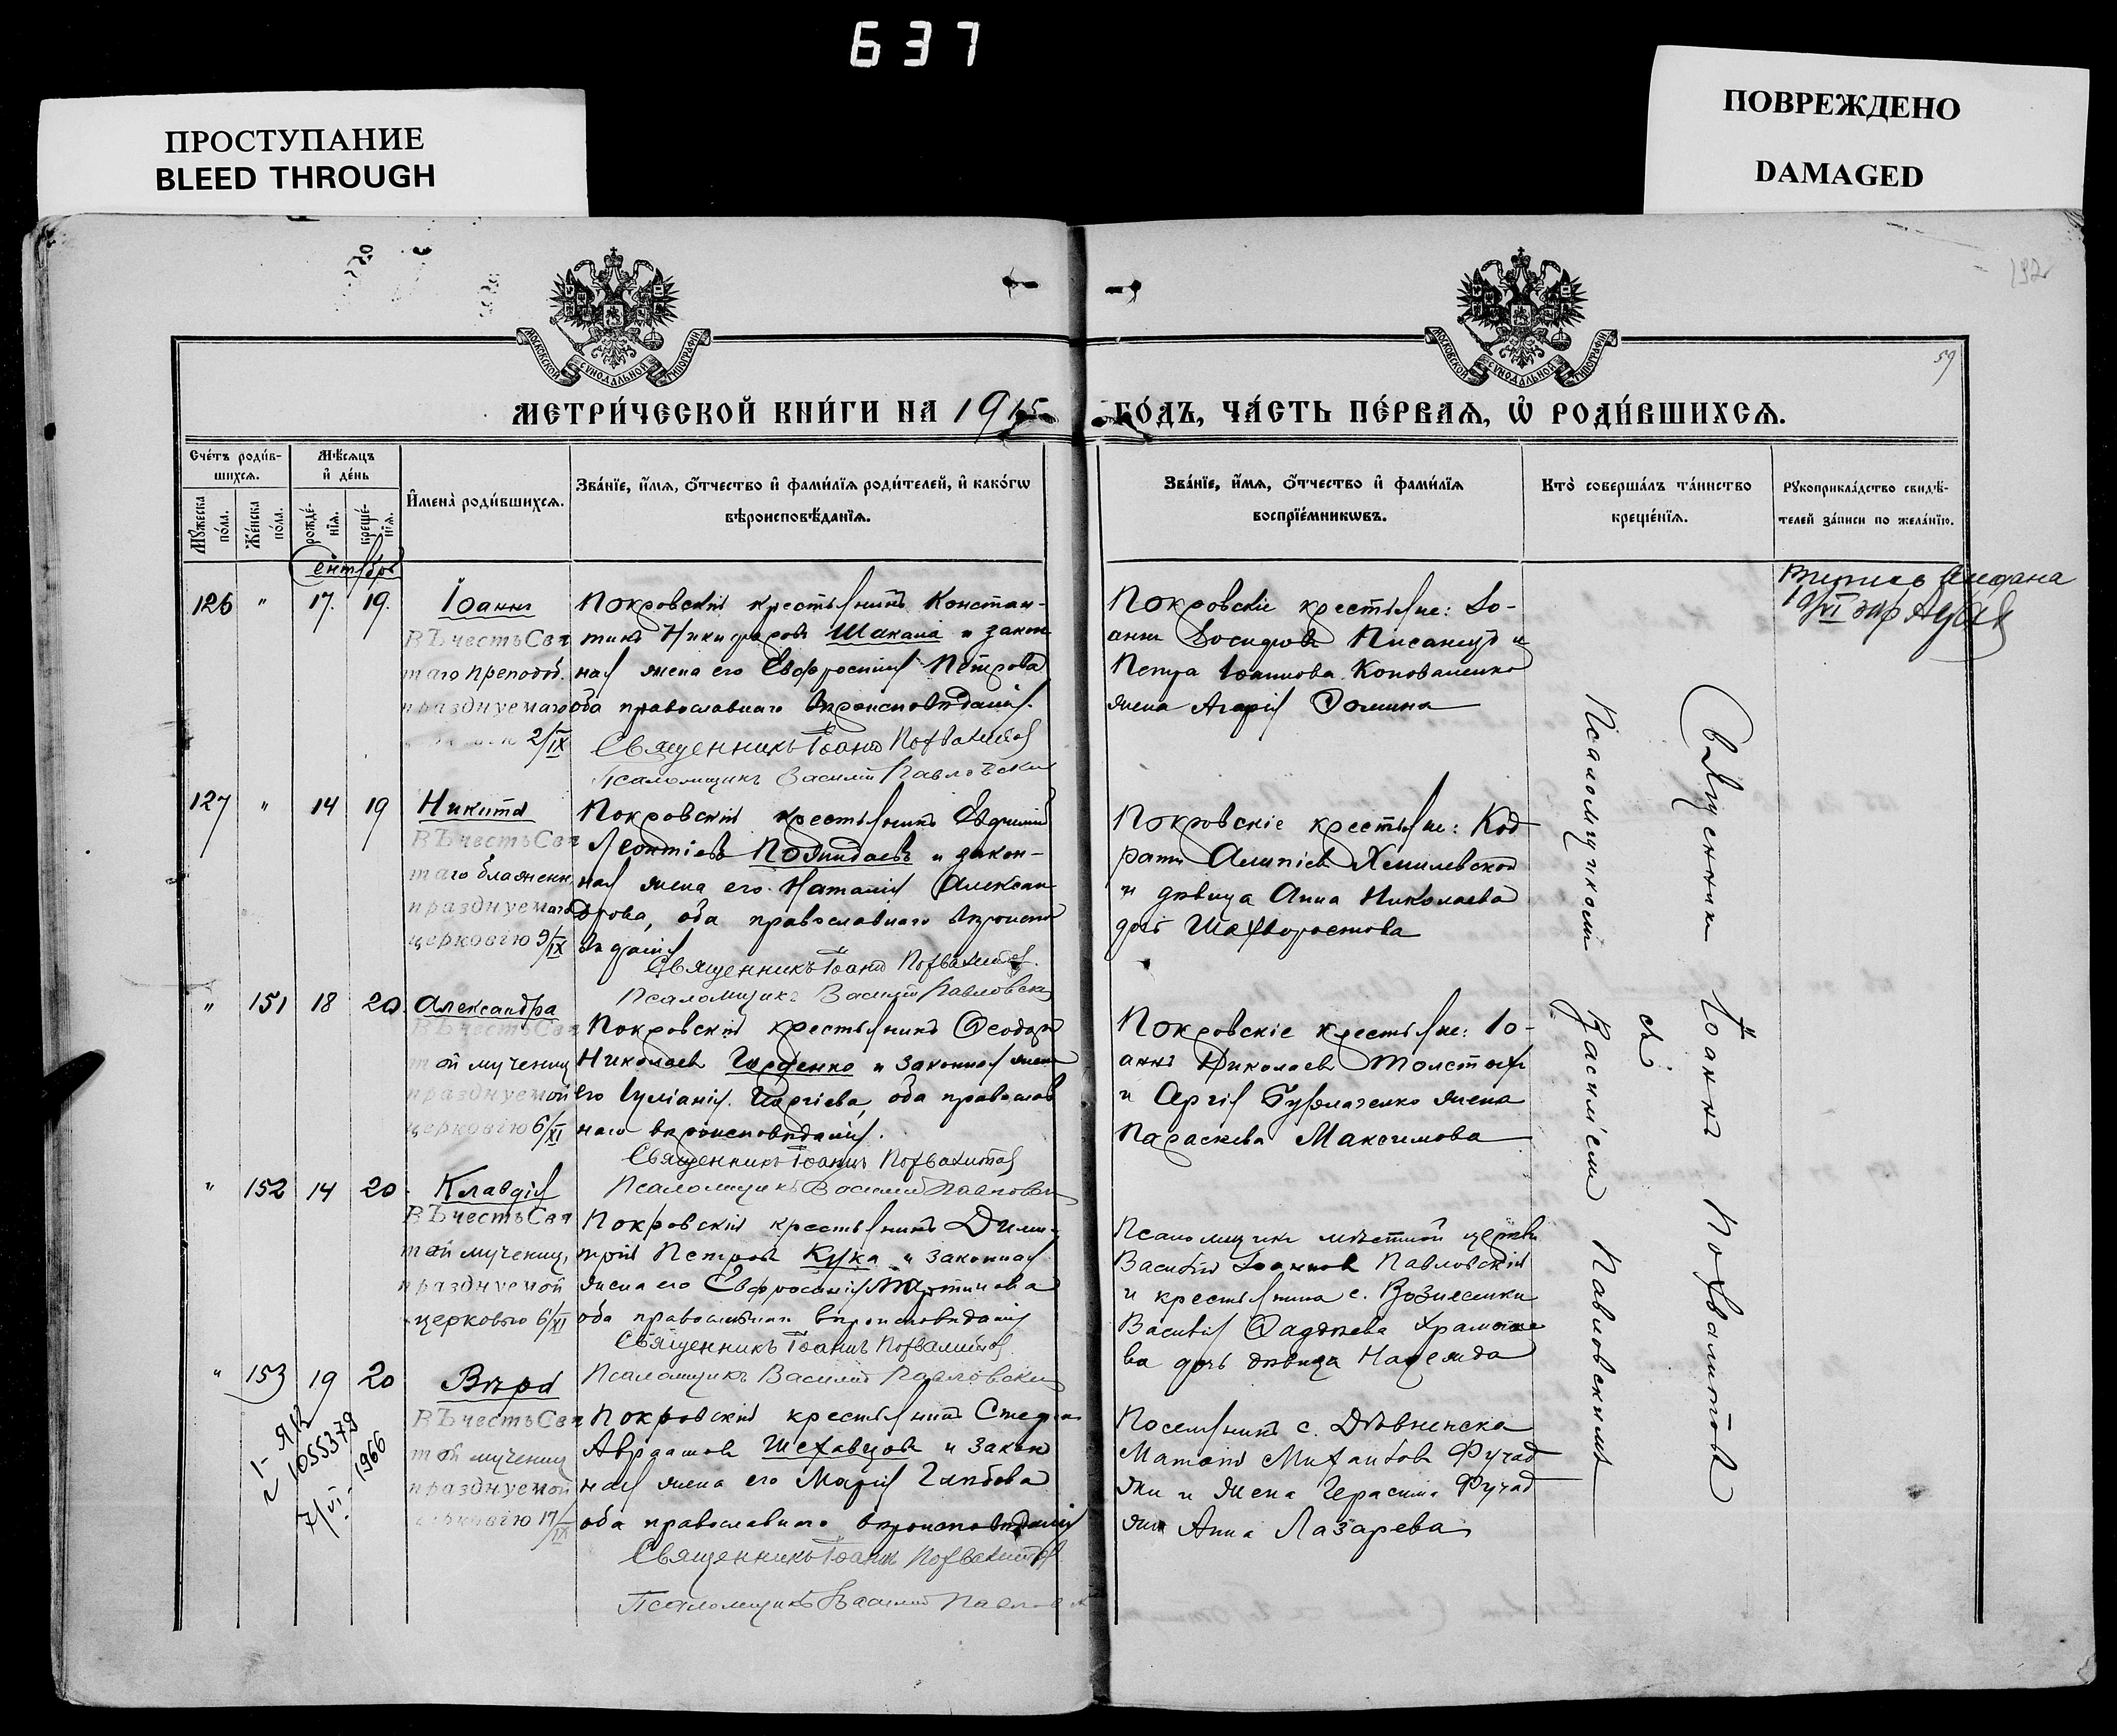 637
ПРОСТУПАНИЕ
BLEED THROUGH
ПОВРЕЖДЕНО
DAMAGED
192
59
МОСКОВСКОЙ СѴНОДАЛЬНОЙ ТИПОГРАФІИ
МОСКОВСКОЙ СѴНОДАЛЬНОЙ ТИПОГРАФІИ
МЕТРИ́ЧЕСКОЙ КНИ́ГИ НА 1915 ГО́ДЪ, ЧА́СТЬ ПЕ́РВАѦ, Ѡ҆ РОДИ́ВШИХСѦ.
Сче́тъ роди́в-
шихсѧ.
Мѹжеска по́ла.
Же́нска по́ла.
Мѣ́сѧцъ
и҆ де́нь
рожде́-
нїѧ.
креще́-
нїѧ.
И҆мена̀ роди́вшихсѧ.
Зва́нїе, и҆́мѧ, ѻ҆́тчество и҆ фами́лїѧ роди́телей, и҆ како́гѡ
вѣроисповѣ́данїѧ.
Зва́нїе, и҆́мѧ, ѻ҆́тчество и҆ фами́лїѧ
воспрїе́мникѡвъ.
Кто̀ соверша́лъ та́инство
креще́нїѧ.
Рꙋкоприкла́дство свидѣ́-
телей за́писи по жела́нїю.
Сентябрь
126 " 17. 19. Іоаннъ
Въ честь Свя
таго преподоб.
празднуемаго
2/IX
Покровскій крестьянинъ Констан-
тинъ Никифоровъ Шакала и закон
ная жена его Евфросинія Петрова
оба православнаго вѣроисповѣданія.
Священникъ Іоаннъ Похвалитовъ
Псаломщикъ Василій Павловскій
Покровскіе крестьяне: Іо-
аннъ Іосифовъ Писанецъ и
Петра Іоаннова Коноваленко
жена Агафія Фомина
19/VI
127 " 14 19 Никита
Въ честь Свя
таго блаженн.
празднуемаго
церковію 9/IX
Покровскій крестьянинъ Евфимій
Леонтіевъ и закон-
ная жена его Наталія Алексан
дрова, оба православнаго вѣроиспо
вѣданія
Священникъ Іоаннъ Похвалитовъ.
Псаломщикъ Василій Павловскій
Покровскіе крестьяне: Код
ратъ Алипіевъ Хмилевской
и дѣвица Анна Николаева
дочь Шахворостова
" 151 18 20. Александра
Въ честь Свя
той мучениц
празднуемой
церковію 6/XI
Покровскій крестьянинъ Феодоръ
Николаевъ и законная жена
его Іуліанія Георгіева, оба православ
наго вѣроисповѣданія.
Священникъ Іоаннъ Похвалитовъ
Псаломщикъ Василій Павловскій
Покровскіе крестьяне: Іо-
аннъ Николаевъ Толстохъ
и жена
Параскева Максимова
" 152 14 20. Клавдія
Въ честь Свя
той мучениц,
празднуемой
церковью 6/XI
Покровскій крестьянинъ Дими-
трій Петровъ Кука и законная
жена его Евфросинія Мартинова
оба православнаго вѣроисповѣданія
Священникъ Іоаннъ Похвалитовъ.
Псаломщикъ Василій Павловскій
Псаломщикъ мѣстной церкви
Василій Іоанновъ Павловскій
и крестьянина с. Вознесенки
Василія Фаддѣева
ва дочь дѣвица Надежда
" 153 19 20 Вѣра
Въ честь Свя
той мучениц
празднуемой
церковію 17/IX
1-ЯК
1055379
7/VI-1966
Покровскій крестьянинъ Стефанъ
и закон
ная жена его Марія Глѣбова
оба православнаго вѣроисповѣданія
Священникъ Іоаннъ Похвалитовъ
Псаломщикъ Василій Павловскій
Поселянинъ с. Дѣвненска
Михаиловъ Фучад
жи и жена Герасима Фучад
жи Анна Лазарева
Священникъ Іоаннъ Похвалитовъ
съ
Псаломщикомъ Василіемъ Павловскимъ